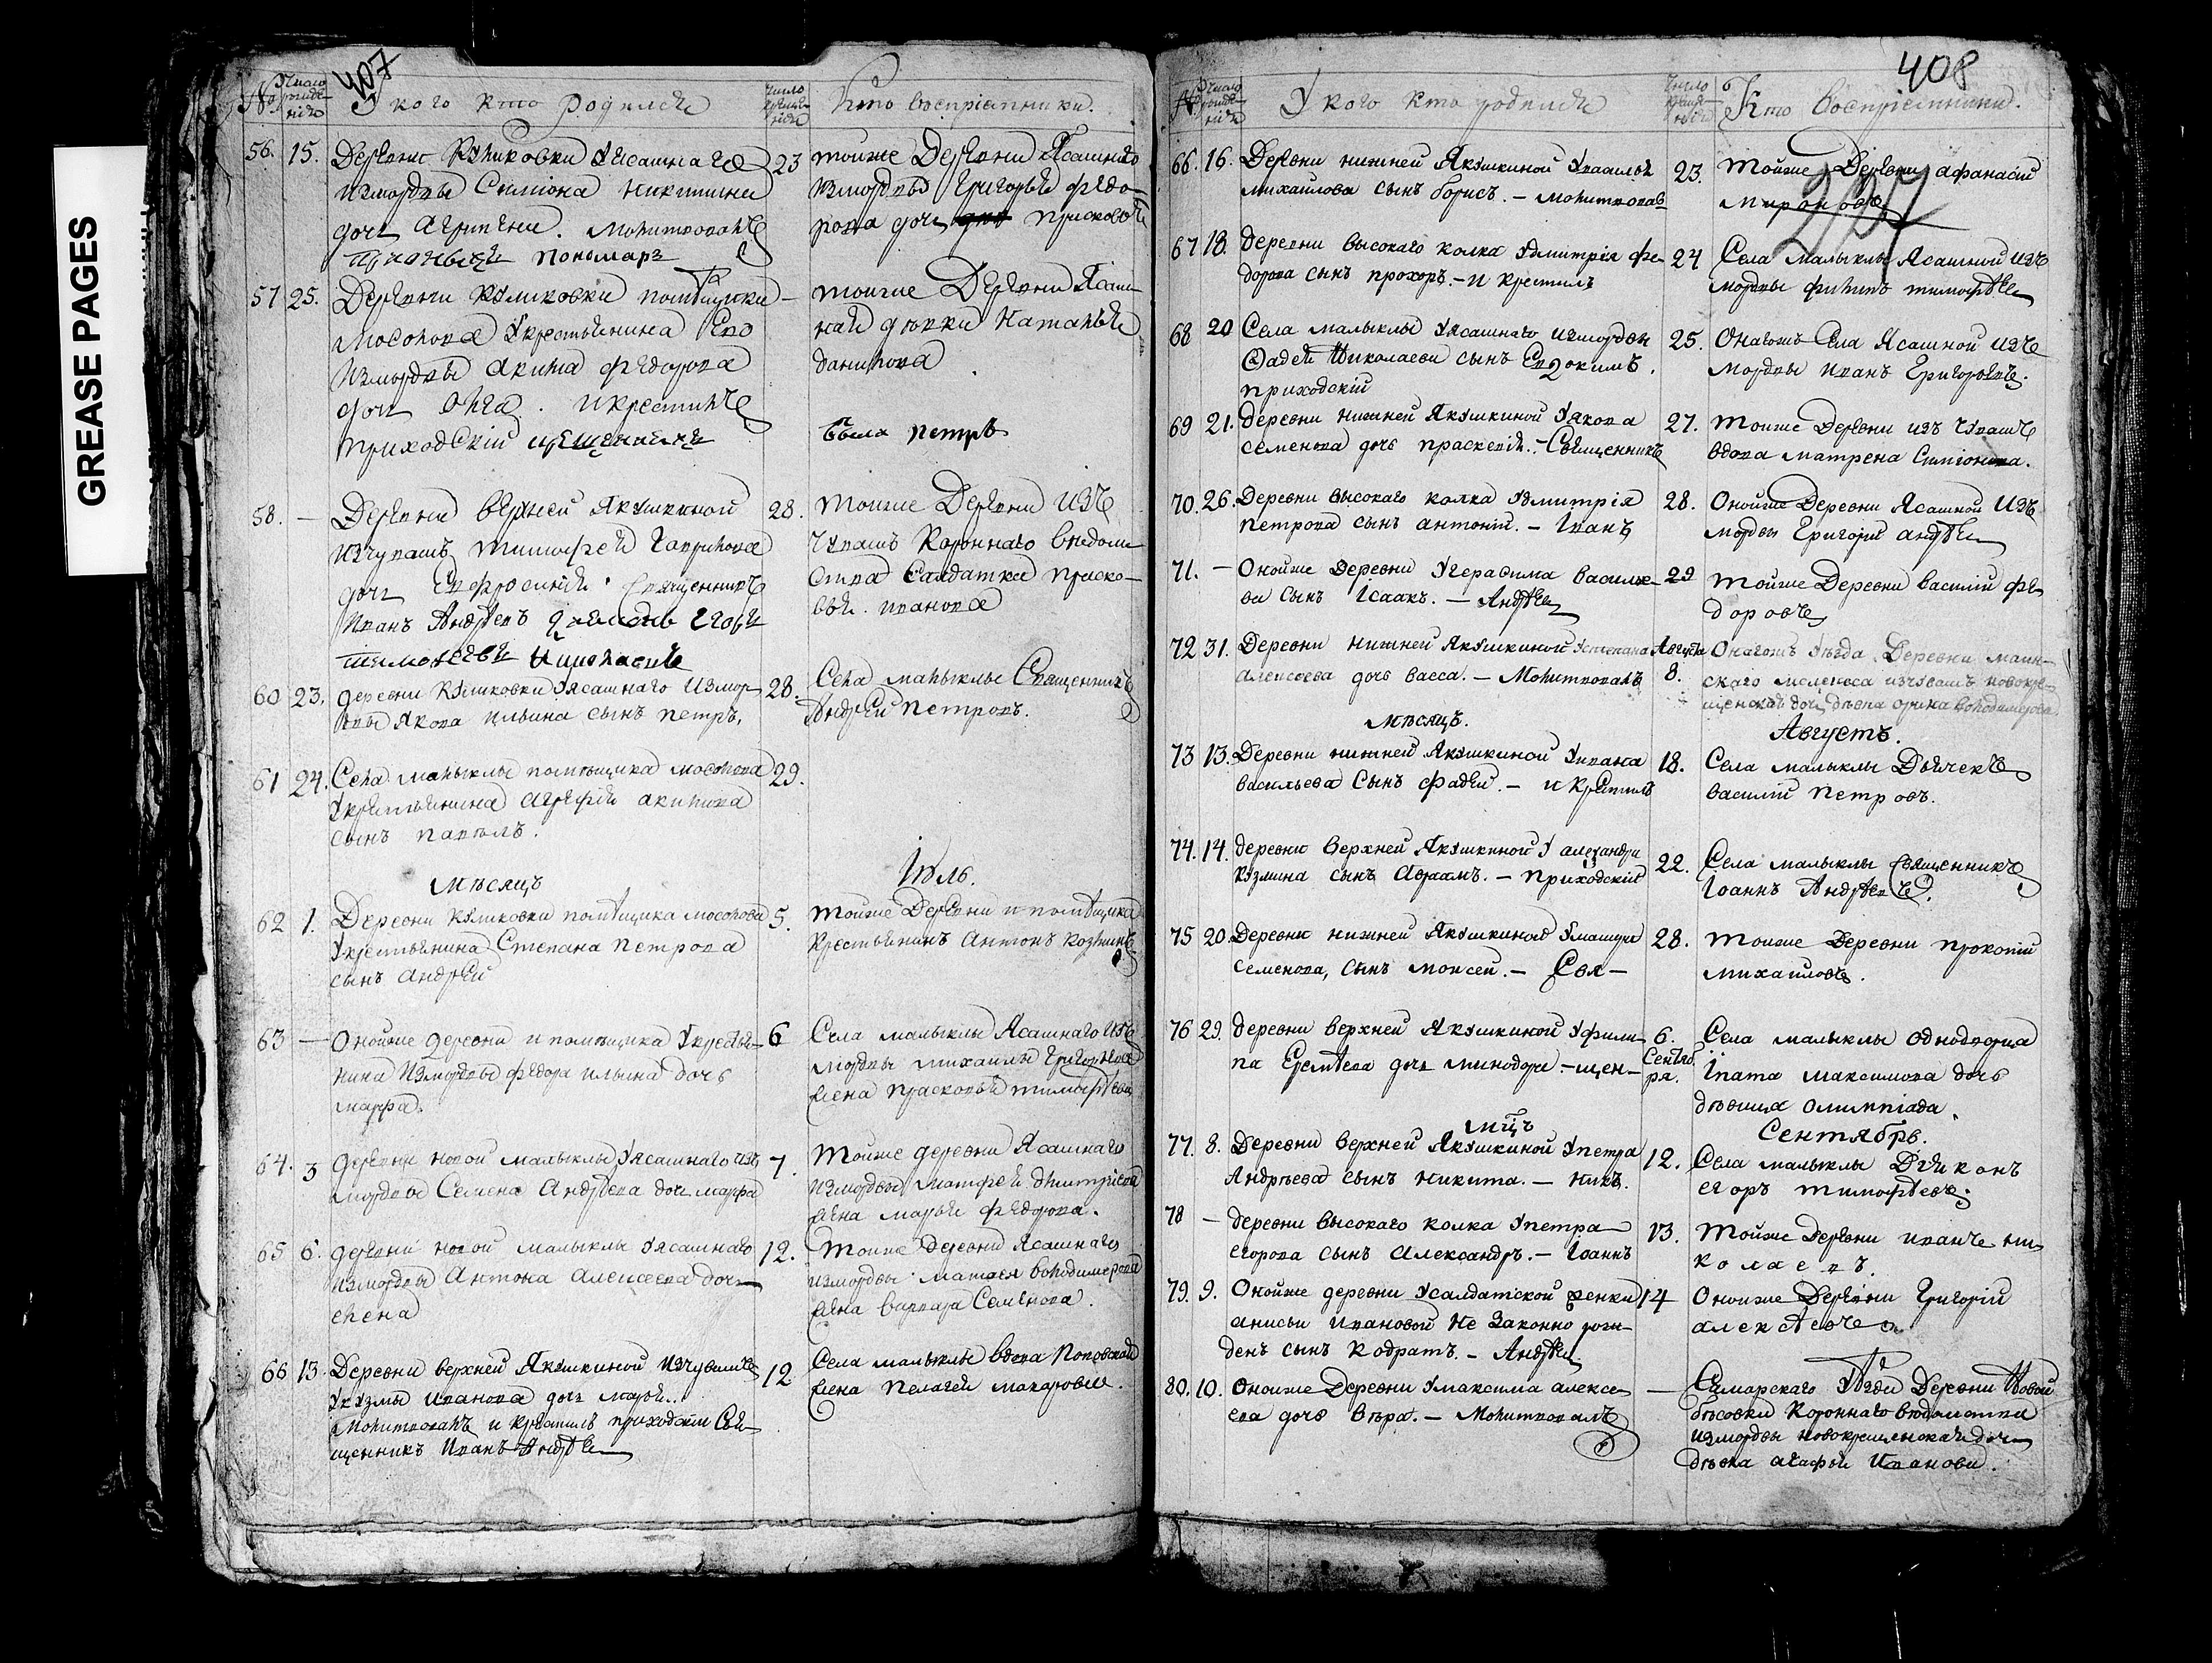 GREASE PAGES
407
№
Число рожде-
нія
У кого кто родился
Число
креще-
нія
Кто воспріемники.
56. 15. Деревни Куликовки Уясашнаго
измордвы Симіона Никитина
дочь Агрипена. Молитвовалъ
Пономарь
23
тоиже Деревни Ясашнаго
измордвы Григорья Федо-
рова дочь Прасковья
57 25. Деревни Куликовки помѣщика
Мосолова Укрестьянина Ево
Измордвы Акима Федорова
дочь Ольга. Икрестилъ
приходскій
тоиже Деревни Ясаш-
ной дѣвки Наталья
данилова
была петръ
58. — Деревни верхней Якушкиной
изчувашъ Тимофея Гаврилова
дочь Ефросинія. Священникъ
Иванъ Андреевъ
28. тоиже Деревни изъ
чувашъ Короннаго вѣдом-
ства Салдатка праско-
вья иванова
60 23. деревни Куликовки Уясашнаго измор-
двы Якова Ильина сынъ петръ,
28. Села малыклы Священникъ
Андреи Петровъ.
61 24. Села малыклы помѣщика мосолова
Укрестьянина акилова
сынъ павелъ.
29.
мѣсяцъ
Іюль.
62 1. Деревни куликовки помѣщика мосолова
Укрестьянина Степана Петрова
сынъ андрей
5. тоиже Деревни и помѣщика
крестьянинъ антонъ козминъ
63 — Онойже деревни и помѣщика Укрестья-
нина Измордвы федора ильина дочь
марфа.
6 Села малыклы Ясашнаго изъ
мордвы михаила Григорьева
жена прасковья тимофѣева
64. 3 деревни новой малыклы Уясашнаго изъ
мордвы Семена Андрѣева дочь марфа
7. тойже деревни Ясашнаго
измордвы матфея дмитріева
жена марья федорова.
65 6. деревни новой малыклы Уясашнаго
измордвы Антона алексеева дочь
елена
12. тоиже деревни Ясашнаго
измордвы матвея володимерова
жена варвара Семенова.
66 13. Деревни верхней Якушкиной изчувашъ
Укузмы иванова дочь марья.
Молитвовалъ и крестилъ приходскіи Свя-
щенникъ Иванъ Андреевъ
12 Села малыклы вдова Поповская
жена Пелагея макаровна.
408
№
Число рожде-
нія
У кого кто родился
Число
креще-
нія
Кто воспріемники.
66. 16. Деревни нижней Якушкиной
михаилова сынъ борисъ. — молитвовалъ
23. тойже Деревни афанасіи
мироновъ
67 18. деревни высокаго колка Удмитрія фе-
дорова сынъ прохоръ. — и крестилъ
24 Села малыклы Ясашной изъ
мордвы филипъ тимофѣевъ
68 20 Села малыклы Уясашнаго измордвы
Фадея Николаева сынъ Евдокимъ.
приходскій
25. Онагожъ Села Ясашной изъ
мордвы иванъ Григорьевъ.
69 21. деревни нижней Якушкиной Уякова
семенова дочь праскевія. — Священникъ
27. тоиже Деревни изъ чувашъ
вдова матрена Симіонова.
70. 26. Деревни высокаго колка Удмитрія
петрова сынъ антоній. — Іванъ
28. Онойже Деревни Ясашной изъ
мордвы Григоріи андрѣевъ
71. — Онойже Деревни Угерасима василье-
ва сынъ Ісаакъ. — Андрѣевъ
29 тойже Деревни василіи фе-
доровъ
72 31. Деревни нижней Якушкиной Устепана
алексеева дочь васса. — Молитвовалъ
Августа
8.
Онагожъ Уѣзда Деревни маин-
скаго изчувашъ новокре-
щенской дочь дѣвка орина володимерова
мѣсяцъ.
Августъ.
73 13. Деревни нижней Якушкиной Уивана
васильева Сынъ фадеи. — и крестилъ
18. Села малыклы Дьячекъ
василіи Петровъ.
74. 14. деревни верхней Якушкиной Уалександра
кузмина сынъ авраамъ. — приходскій
22. Села малыклы священникъ
Іоаннъ Андрѣевъ.
75 20. Деревни нижней Якушкиной
семенова, сынъ моисей. — Свя —
28. тоиже Деревни прокопіи
михаиловъ.
76 29. деревни верхней Якушкиной Уфили-
па Еремѣева дочь минодора. — щен —
6.
Сентяб
ря.
Села малыклы однодворца
Ипата максимова дочь
дѣвица Олимпіада.
мцъ
Сентябрь.
77. 8. Деревни верхней Якушкиной Упетра
Андрѣева сынъ никита. — никъ.
12. Села малыклы Діяконъ
егоръ тимофѣевъ.
78 — деревни высокаго колка Упетра
егорова сынъ Александръ. — Іоаннъ
13. тойже Деревни иванъ ни-
колаевъ.
79. 9. Онойже деревни Усалдатской женки
анисьи ивановой не законно рож-
денъ сынъ кодратъ. — Андрѣевъ
14 Оноиже Деревни Григоріи
алексѣевъ
80. 10. Оноиже Деревни Умаксима алексе-
ева дочь вѣра. — Молитвовалъ
— Самарскаго Уѣзда Деревни Новой
бѣсовки Короннаго вѣдомства
измордвы новокрещенская дочь
дѣвка агафья Иванова.